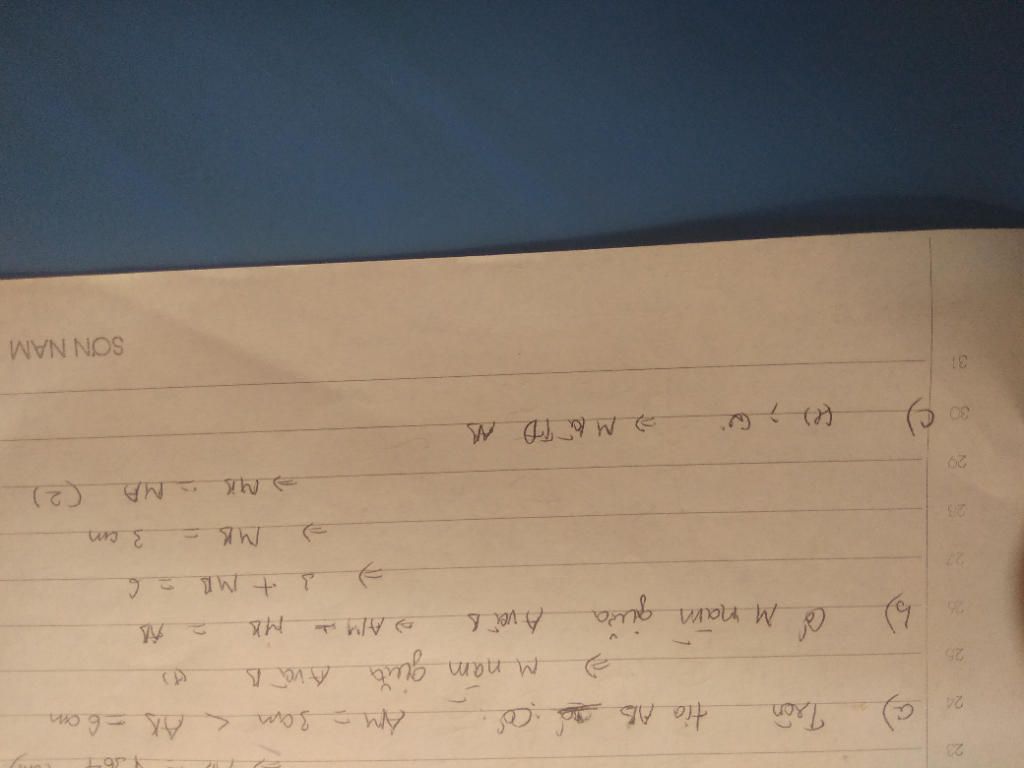 23
24 a) Trên tia AB có: AM = 3cm < AB = 6cm
25 => M nằm giữa A và B (1)
26 b) Có M nằm giữa A và B => AM + MB = AB
27 => 3 + MB = 6
28 => MB = 3 cm
29 => MB = MA (2)
30 c) (1) ; (2) => M là TĐ AB
31
SƠN NAM